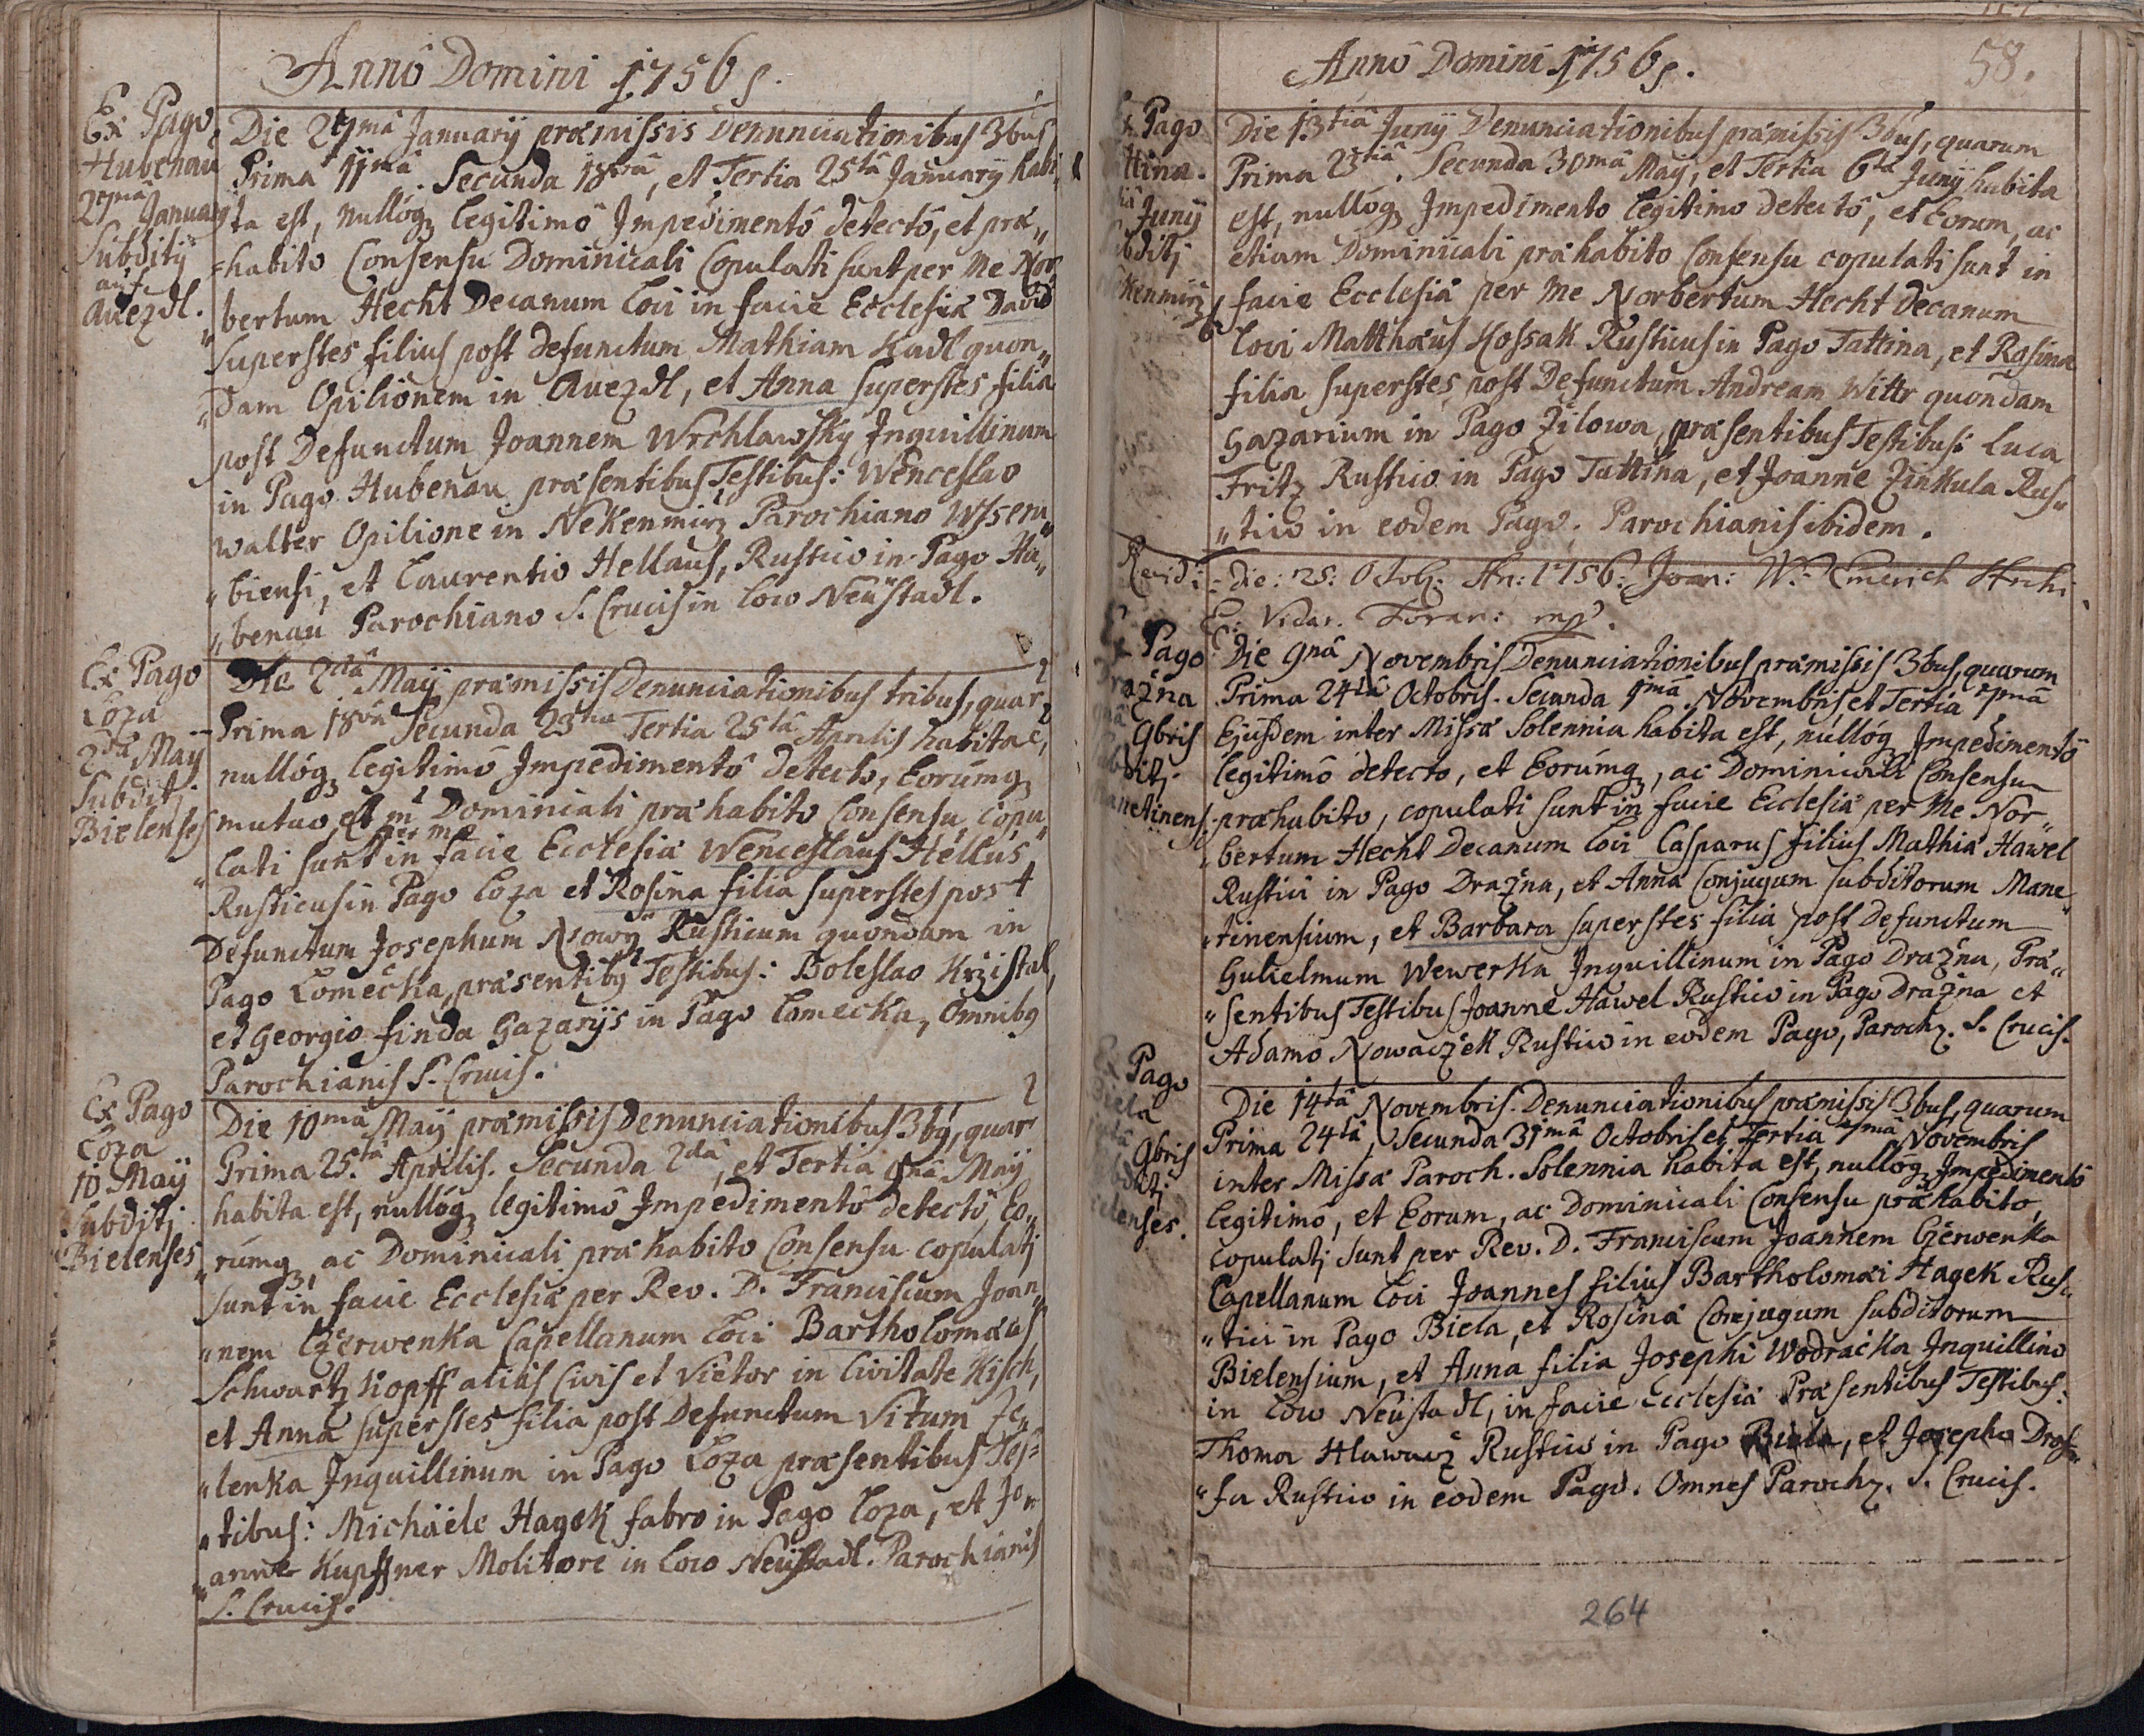 Anno Domini 1756
Ex Pago
Hubenau
27ma January
Subditj
auf
Auezdl.
Die 27ma January præmissis Denunciationibus 3bus
Prima 11ma. Secunda 18va, et Tertia 25ta January habi„
ta est, nullóq legitimô Impedimentô detectô, et præ„
=habito Consensu Dominicali Copulati sunt per Me Nor
bertum Hecht Decanum Loci in facie Ecclesiæ David
Superstes filius post defunctum Mathiam Kadl quon„
„dam Opilionem in Auezdl, et Anna superstes filia
post Defunctum Joannem Wrchlawsky Inquillinum
in Pago Hubenau præsentibus Testibus: Wenceslao
Walter Opilione in Nekenmirz Parochiano Wsseru„
„biensi, et Laurentio Hellaus, Rustico in Pago Hu„
„benau Parochiano S. Crucis in Loco Neüstadl.
Ex Pago
Loza
2da May
Subditj
Bielenses
Die 2da Maÿ præmissis Denunciationibus tribus, quar
Prima 18va Secunda 23tia Tertia 25ta Aprilis habita e,
nullóq legitimô Impedimentô detecto, Eorúmq
mutuo, et Dominicali præhabito Consensu, copu„
per me
„lati sunt in facie Ecclesiæ Wenceslaus Hellus
Rusticus in Pago Loza et Rosina filia superstes post
Defunctum Josephum Nowÿ Rusticum quondam in
Pago Lomečka, præsentibq Testibus: Boleslao Krzistal,
et Georgio finda Gazarijs in Pago Lomecka, Omnibq
Parochianis S. Crucis.
Ex Pago
Loza
10 Maÿ
Subditj
Bielenses
Die 10ma Maÿ præmissis Denunciationibus 3bq, quar
Prima 25ta Aprilis. Secunda 2da, et Tertia 9na Maÿ
habita est, nullóq legitimô Impedimentô detectô, Eo„
„rúmq ac Dominicali præhabito Consensu copulatj
sunt in facie Ecclesiæ per Rev. D. Franciscum Joan„
„nem Czerwenka Capellanum Loci Bartholomæus
Schwartzkopff aliàs Civis et Vietor in Civitate Kisch,
et Anna superstes filia post Defunctum Vitum Ze„
„lenka Inquillinum in Pago Loza præsentibus Tes=
„tibus: Michaële Hagek fabro in Pago Loza, et Jo„
„anne Kupffner Molitore in Loco Neüstadl. Parochianis
S. Crucis.
Anno Domini 1756
58.
Pago
ttina.
Junÿ
bditj
kenmirz
Die 13tia Junÿ Denunciationibus præmissis 3bus, quarum
Prima 23tia. Secunda 30ma Maÿ, et Tertia 6ta Junÿ habita
est, nullóq Impedimento legitimo detectô, et Eorum, ac
etiam Dominicali præhabito Consensu copulati sunt in
facie Ecclesiæ per Me Norbertum Hecht Decanum
Loci Matthæus Kossak Rusticus in Pago Tattina, et Rosina
filia superstes post Defunctum Andream Wittr quondam
Gazarium in Pago Zilowa, præsentibus Testibus: Luca
Fritz Rustico in Pago Tattina, et Joanne Zinkula Rus„
„tico in eodem Pago. Parochianis ibidem.
Revidi: Die: 25: Octob: An: 1756: Joan: W: Emerich Archi
E: Vicar. Foran: mp.
Ex Pago
Drazna
9bris
Subditj
Manetinens:
Die 9na Novembris Denunciationibus præmissis 3bus, quarum
Prima 24ta Octobris. Secunda 1ma Novembris, et Tertia 7ma
Ejusdem inter Missæ Solennia habita est, nullóq Impedimentô
legitimô detecto, et Eorúmq, ac Dominicali Consensu
præhabito, copulati sunt in facie Ecclesiæ per Me Nor„
„bertum Hecht Decanum Loci Casparus filius Mathiæ Hawel
Rustici in Pago Drazna, et Anna Conjugum subditorum Mane
„tinensium, et Barbara superstes filia post Defunctum
Gulielmum Wewerka Inquillinum in Pago Drazna, Præ„
„sentibus Testibus Joanne Hawel Rustico in Pago Drazna et
Adamo Nowaczek Rustico in eodem Pago, Paroch. S. Crucis.
Ex Pago
Biela
9bris
Subditj
Bielenses.
Die 14ta Novembris. Denunciationibus præmissis 3bus, quarum
Prima 24ta, Secunda 31ma Octobris et Tertia 7ma Novembris
inter Missæ Paroch. Solennia habita est, nullóq Impedimentô
legitimô, et Eorum, ac Dominicali Consensu præhabito,
copulatj sunt per Rev. D. Franciscum Joannem Czerwenka
Capellanum Loci Joannes filius Bartholomæi Hagek Rus„
„tici in Pago Biela, et Rosinæ Conjugum subditorum
Bielensium, et Anna filia Josephi Wodracka Inquillino
in Loco Neüstadl, in facie Ecclesiæ Præsentibus Testibus:
Thoma Hlawacz Rustico in Pago Biela, et Josepho Dros„
„fa Rustico in eodem Pago. Omnes Paroch. S. Crucis.
264